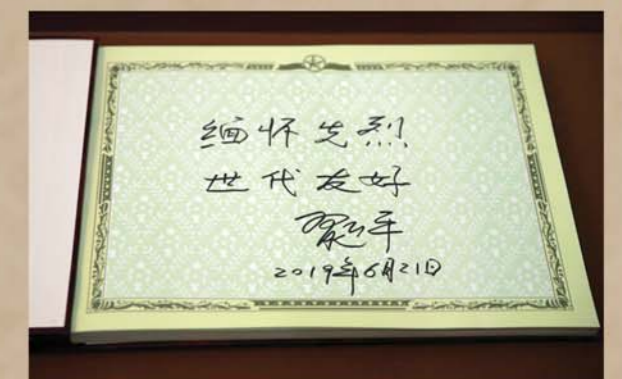 缅怀先烈
世代友好
习近平
2019年6月21日